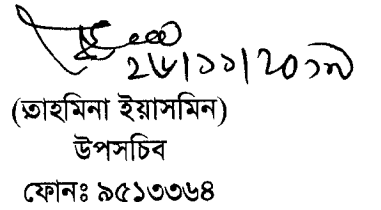 ২৮/১১/২০১৭
(তাহমিনা ইয়াসমিন)
উপসচিব
ফোনঃ ৯৫১৩৩৬৪